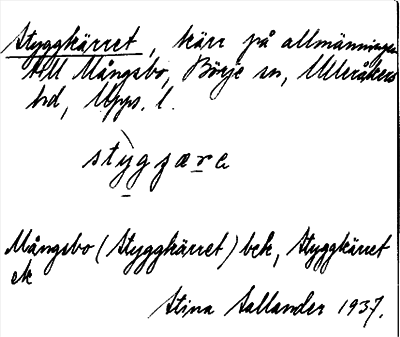 Styggkärret, kärr på allmänningen
till Mångsbo, Börje sn, Ulleråkers
hd, Upps. l.
stygɡære
Mångsbo (Styggkärret) bek, Styggkärret
ek
Stina Sallander 1937.